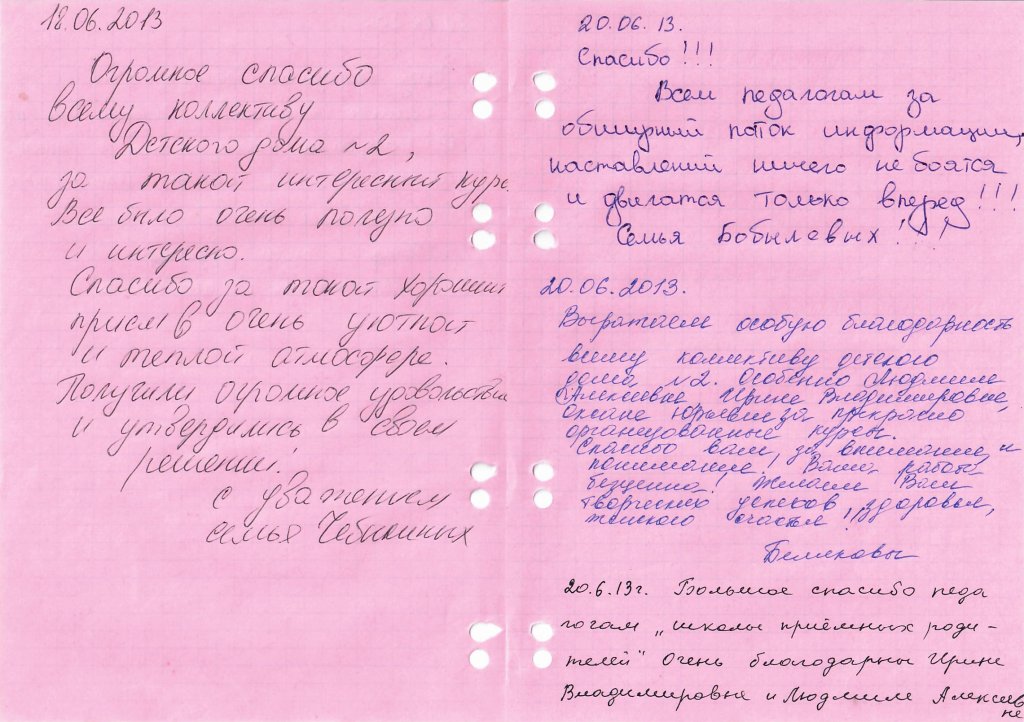 18.06.2013
Огромное спасибо
всему коллективу
Детского дома №2,
за такой интересный курс
Всё было очень полезно
и интересно.
Спасибо за такой хороший
приём в очень уютной
и теплой атмосфере.
Получили огромное удовольствие
и утвердились в своем
решении!
с уважением
семья Чебыкиных
20.06.13.
Спасибо!!!
Всем педагогам за
обширный поток информации,
наставлений ничего не боятся
и двигатся только вперед!!!
Семья Бобылевых!!!
20.06.2013.
Выражаем особую благодарность
всему коллективу детского
дома №2. Особенно Людмиле
Алексеевне, Ирине Владимировне,
Оксане Юрьевне за прекрасно
организованные курсы.
Спасибо вам, за внимание и
понимание! Ваша работа
бесценна! Желаем Вам
творческих успехов здоровья,
женского счастья!!
Беляковы
20.6.13г. Большое спасибо педа
гогам „школы приёмных роди-
телей" Очень благодарны Ирине
Владимировне и Людмиле Алексеев
не